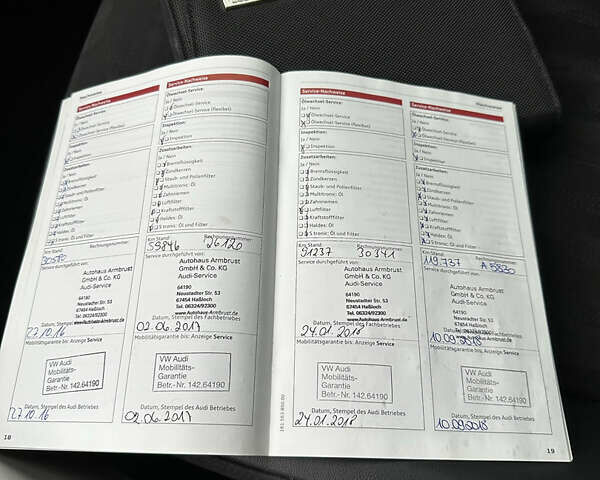 Nachweise
Service-Nachweise
Ölwechsel-Service:
Ja / Nein
Ölwechsel-Service
Ölwechsel-Service (flexibel)
Inspektion:
Ja / Nein
Inspektion
Zusatzarbeiten:
Ja / Nein
Bremsflüssigkeit
Zündkerzen
Staub- und Pollenfilter
Multitronic: Öl
Zahnriemen
Luftfilter
Kraftstofffilter
Haldex: Öl
S tronic: Öl und Filter
Km Stand:
Rechnungsnummer:
Service durchgeführt von:
Autohaus Armbrust
GmbH & Co. KG
Audi-Service
64190
Neustadter Str. 53
67454 Haßloch
Tel. 06324/92300
www.Autohaus-Armbrust.de
27.10.16
Datum, Stempel des Fachbetriebes
Mobilitätsgarantie bis: Anzeige Service
VW Audi
Mobilitäts-
Garantie
Betr.-Nr. 142.64190
Datum, Stempel des Audi Betriebes
27.10.16
18
Service-Nachweise
Ölwechsel-Service:
Ja / Nein
Ölwechsel-Service
Ölwechsel-Service (flexibel)
Inspektion:
Ja / Nein
Inspektion
Zusatzarbeiten:
Ja / Nein
Bremsflüssigkeit
Zündkerzen
Staub- und Pollenfilter
Multitronic: Öl
Zahnriemen
Luftfilter
Kraftstofffilter
Haldex: Öl
S tronic: Öl und Filter
Km Stand:
Rechnungsnummer:
59846
26120
Service durchgeführt von:
Autohaus Armbrust
GmbH & Co. KG
Audi-Service
64190
Neustadter Str. 53
67454 Haßloch
Tel. 06324/92300
www.Autohaus-Armbrust.de
02.06.2017
Datum, Stempel des Fachbetriebes
Mobilitätsgarantie bis: Anzeige Service
VW Audi
Mobilitäts-
Garantie
Betr.-Nr. 142.64190
Datum, Stempel des Audi Betriebes
02.06.2017
Service-Nachweise
Ölwechsel-Service:
Ja / Nein
Ölwechsel-Service
Ölwechsel-Service (flexibel)
Inspektion:
Ja / Nein
Inspektion
Zusatzarbeiten:
Ja / Nein
Bremsflüssigkeit
Zündkerzen
Staub- und Pollenfilter
Multitronic: Öl
Zahnriemen
Luftfilter
Kraftstofffilter
Haldex: Öl
S tronic: Öl und Filter
Km Stand:
Rechnungsnummer:
91237
30341
Service durchgeführt von:
Autohaus Armbrust
GmbH & Co. KG
Audi-Service
64190
Neustadter Str. 53
67454 Haßloch
Tel. 06324/92300
www.Autohaus-Armbrust.de
24.01.2018
Datum, Stempel des Fachbetriebes
Mobilitätsgarantie bis: Anzeige Service
VW Audi
Mobilitäts-
Garantie
Betr.-Nr. 142.64190
Datum, Stempel des Audi Betriebes
24.01.2018
Nachweise
Service-Nachweise
Ölwechsel-Service:
Ja / Nein
Ölwechsel-Service
Ölwechsel-Service (flexibel)
Inspektion:
Ja / Nein
Inspektion
Zusatzarbeiten:
Ja / Nein
Bremsflüssigkeit
Zündkerzen
Staub- und Pollenfilter
Multitronic: Öl
Zahnriemen
Luftfilter
Kraftstofffilter
Haldex: Öl
S tronic: Öl und Filter
Km Stand:
Rechnungsnummer:
119.737
A 5830
Service durchgeführt von:
Autohaus Armbrust
GmbH & Co. KG
Audi-Service
64190
Neustadter Str. 53
67454 Haßloch
Tel. 06324/92300
www.Autohaus-Armbrust.de
10.09.2018
Datum, Stempel des Fachbetriebes
Mobilitätsgarantie bis: Anzeige Service
VW Audi
Mobilitäts-
Garantie
Betr.-Nr. 142.64190
Datum, Stempel des Audi Betriebes
10.09.2018
19